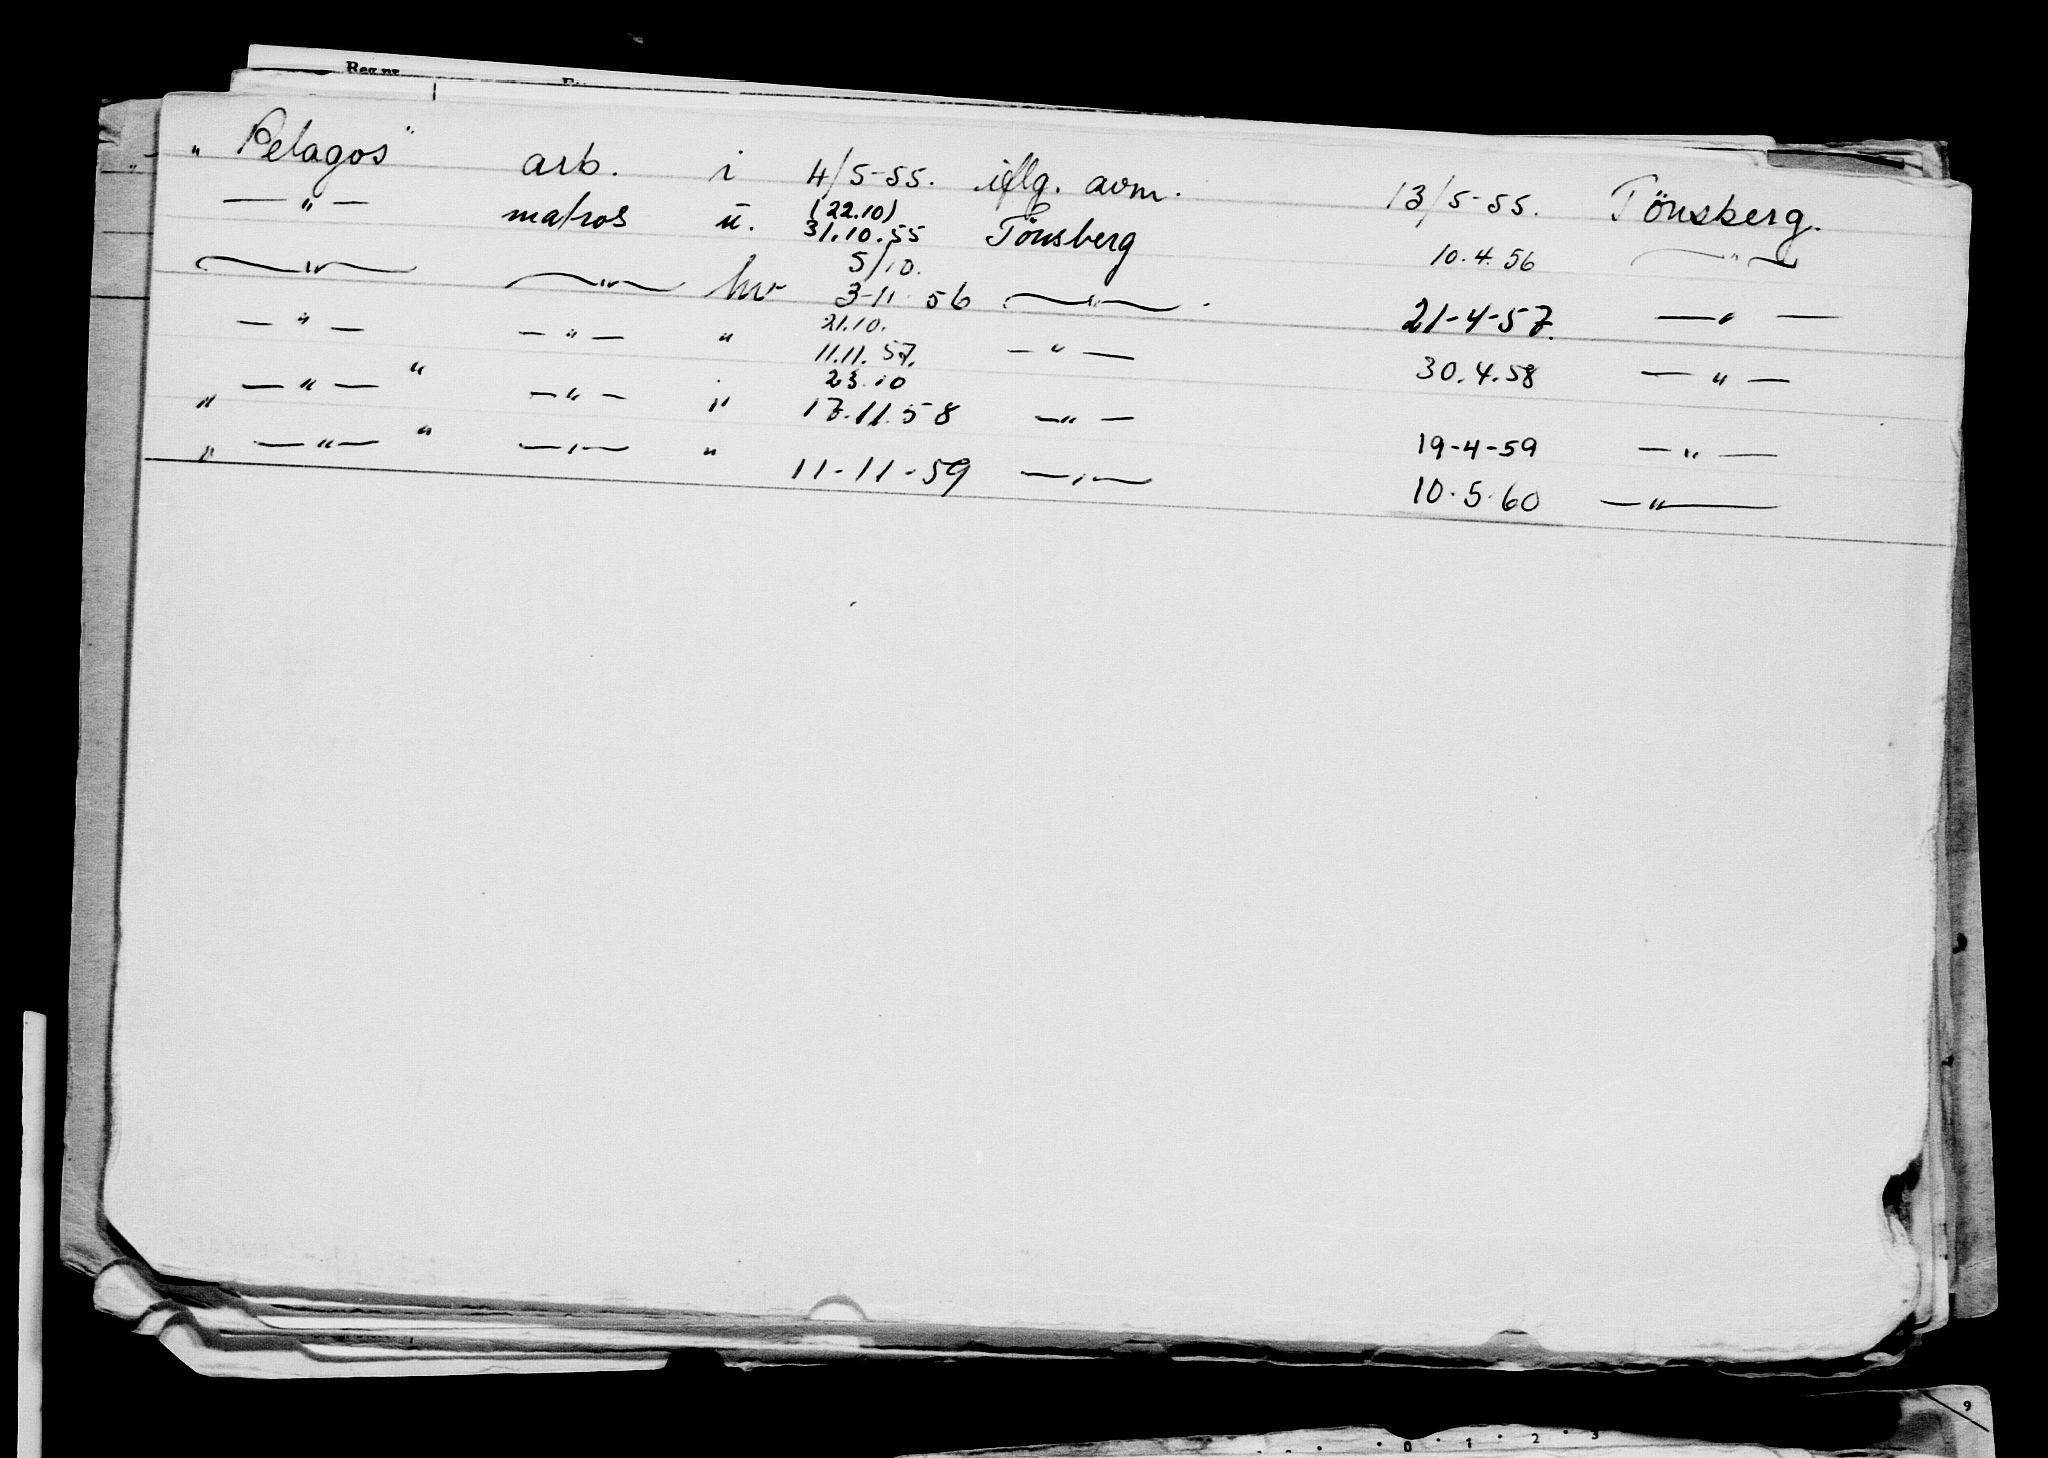 Reg.nr.
„ Pelagos" arb. i 4/5-55. iflg. avm. 13/5-55. Tönsberg.
— " — matros u. (22.10) 31.10.55 Tönsberg 10.4.56 — " —
— " — — " — hv 5/10. 3-11-56 — " — . 21-4-57. — " —
— " — — " — " 21.10. 11.11.57. — " — 30.4.58 — " —
„ — " — " — " — " 23.10 17.11.58 — " — 19-4-59 — " —
„ — " — " — " — " 11-11-59 — " — 10.5.60 — " —
9
0 · 1 · 2 · 3